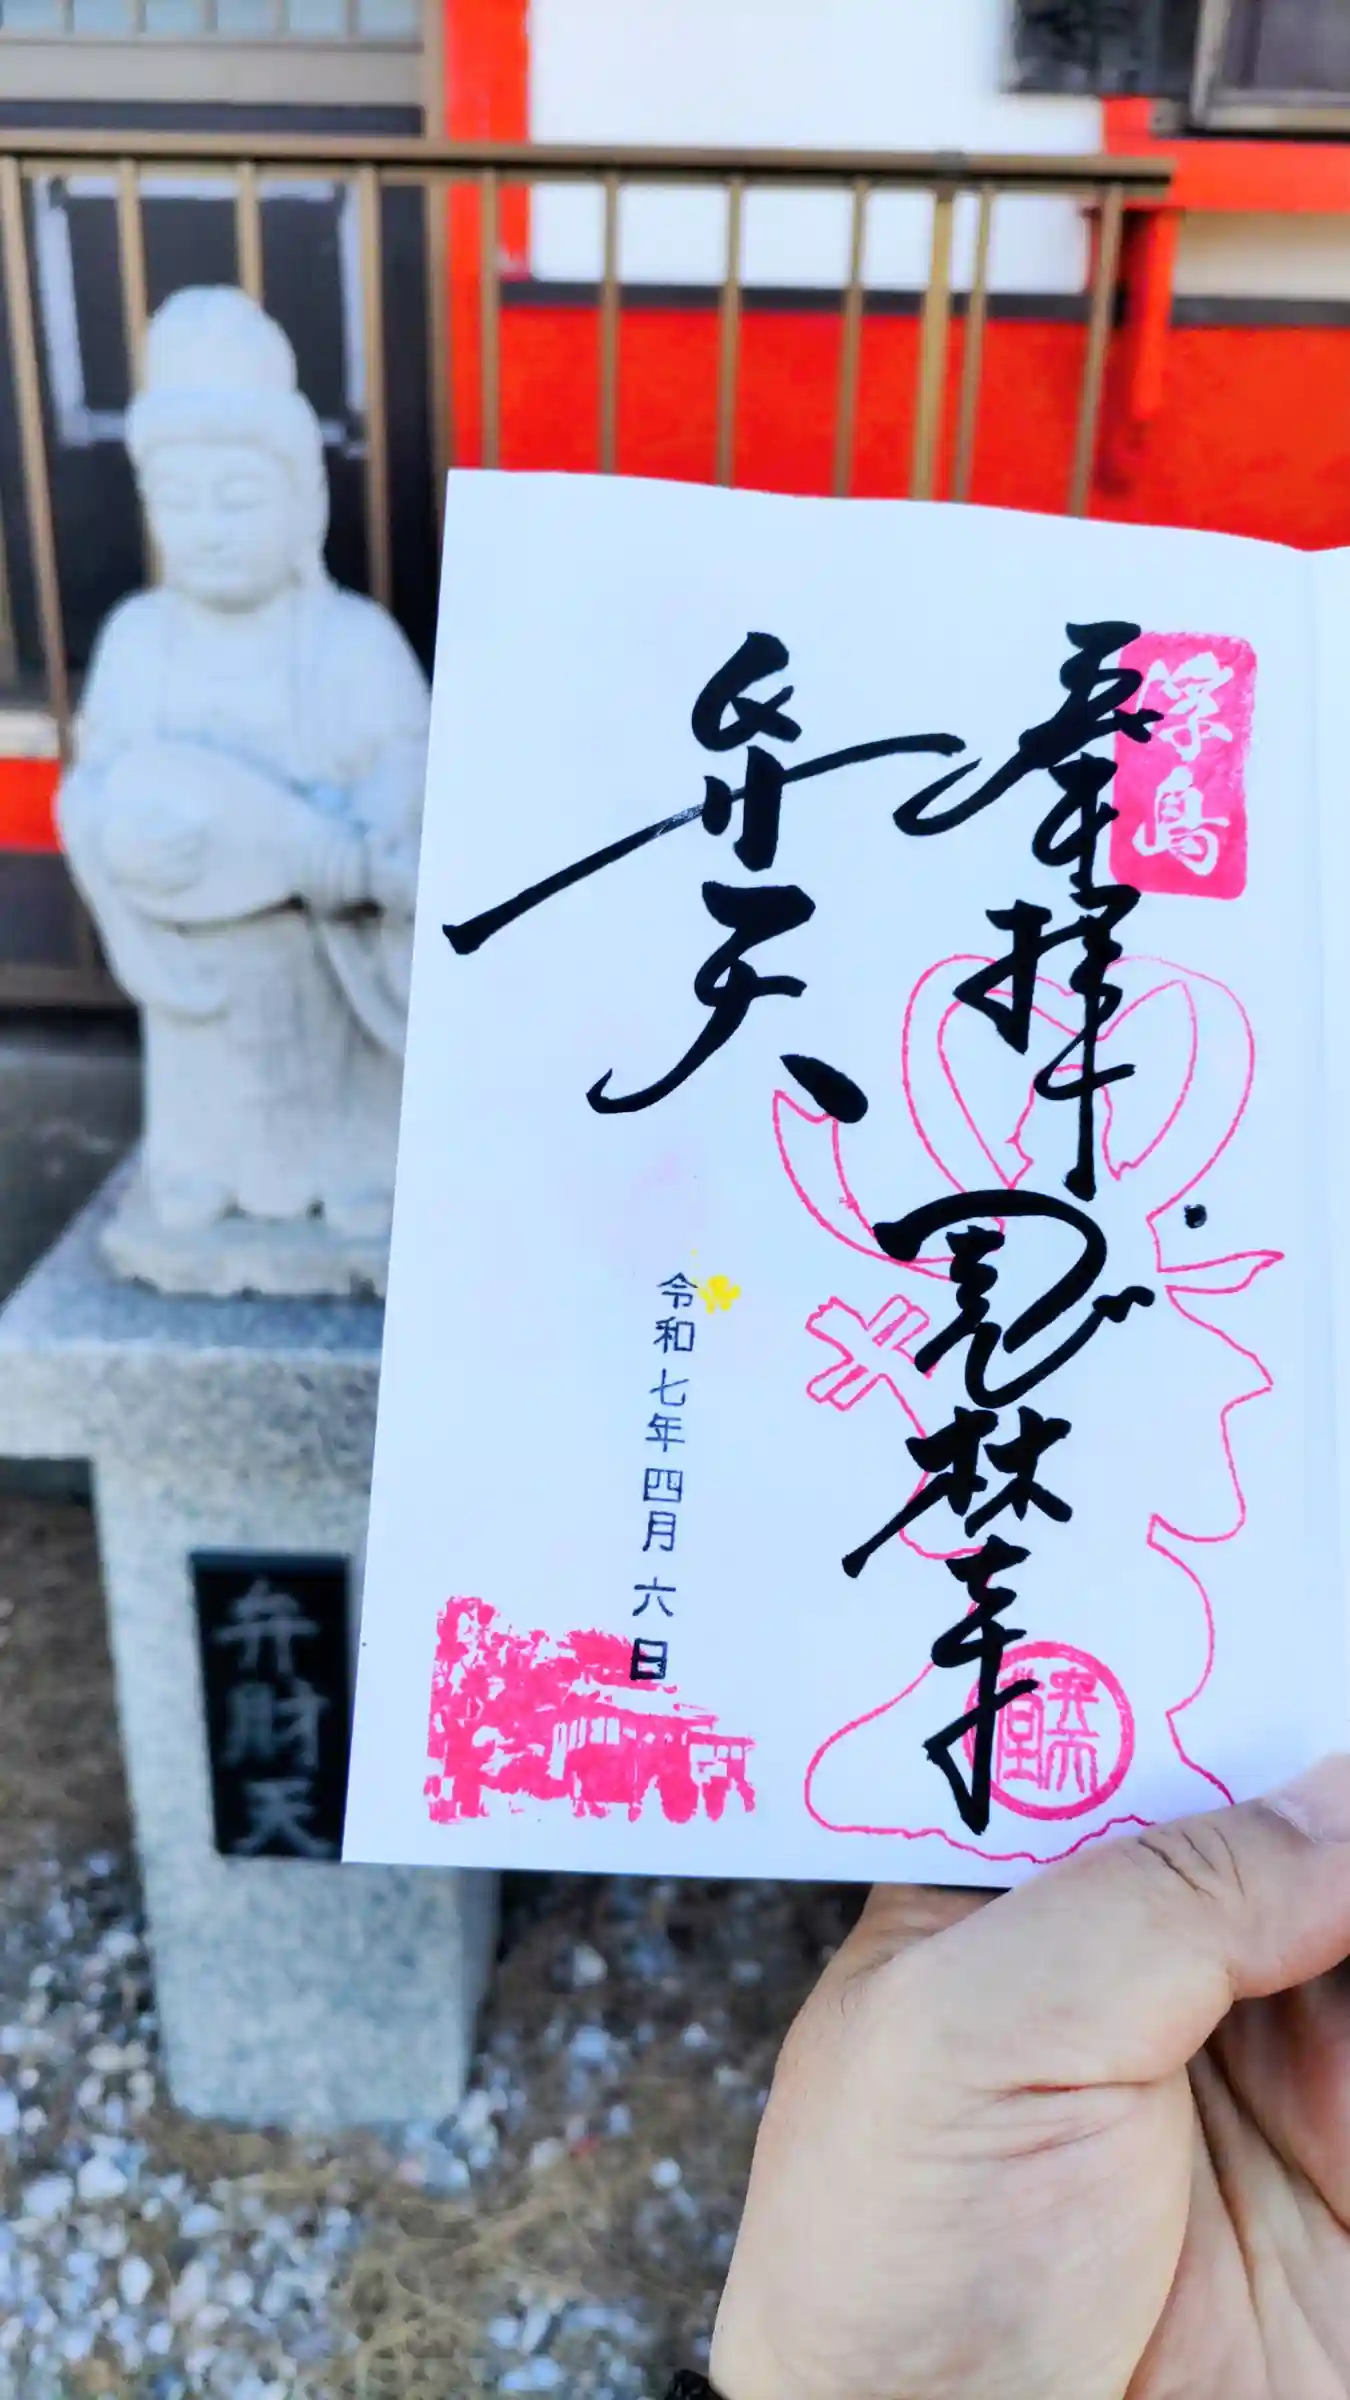 奉拝
鳳林寺
弁天
令和七年四月六日
弁天堂
弁財天